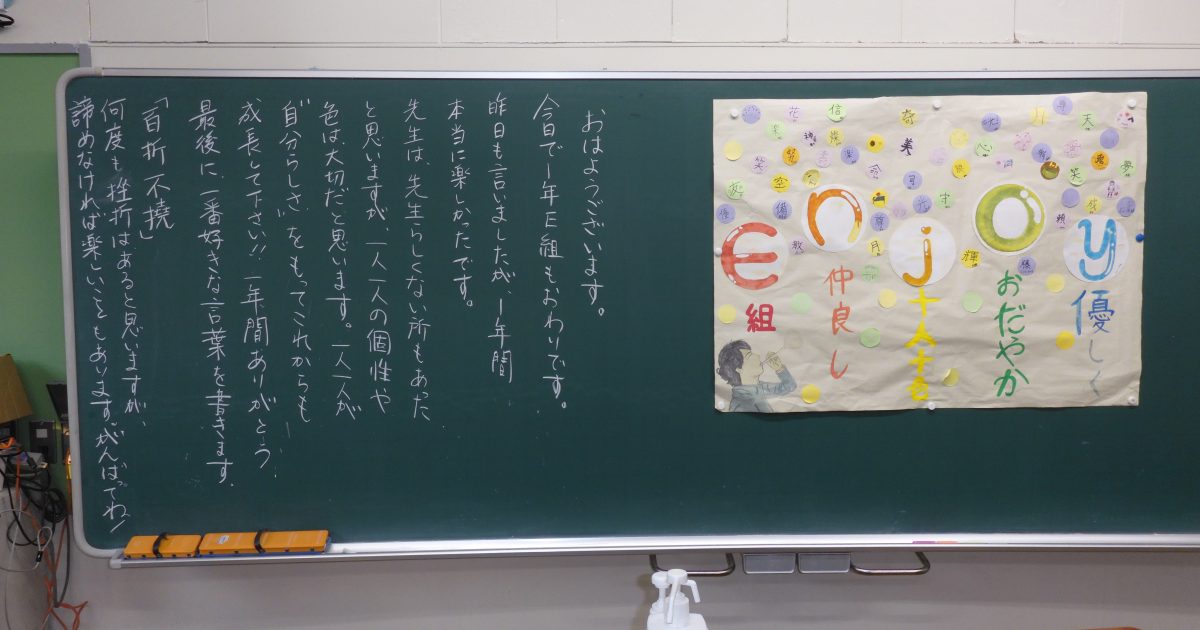 おはようございます。
今日で1年E組もおわりです。
昨日も言いましたが、1年間
本当に楽しかったです。
先生は、先生らしくない所もあった
と思いますが、一人一人の個性や
色は大切だと思います。一人一人が
"自分らしさ"をもってこれからも
成長して下さい!! 一年間ありがとう
最後に、一番好きな言葉を書きます。
「百折不撓」
何度も挫折はあると思いますが、
諦めなければ楽しいこともあります。がんばってね!
Enjoy
E組
仲良し
十人十色
おだやか
優しく
花
信
奇
力
天
楽
美
心
笑
空
守
月
輝
夢
笑